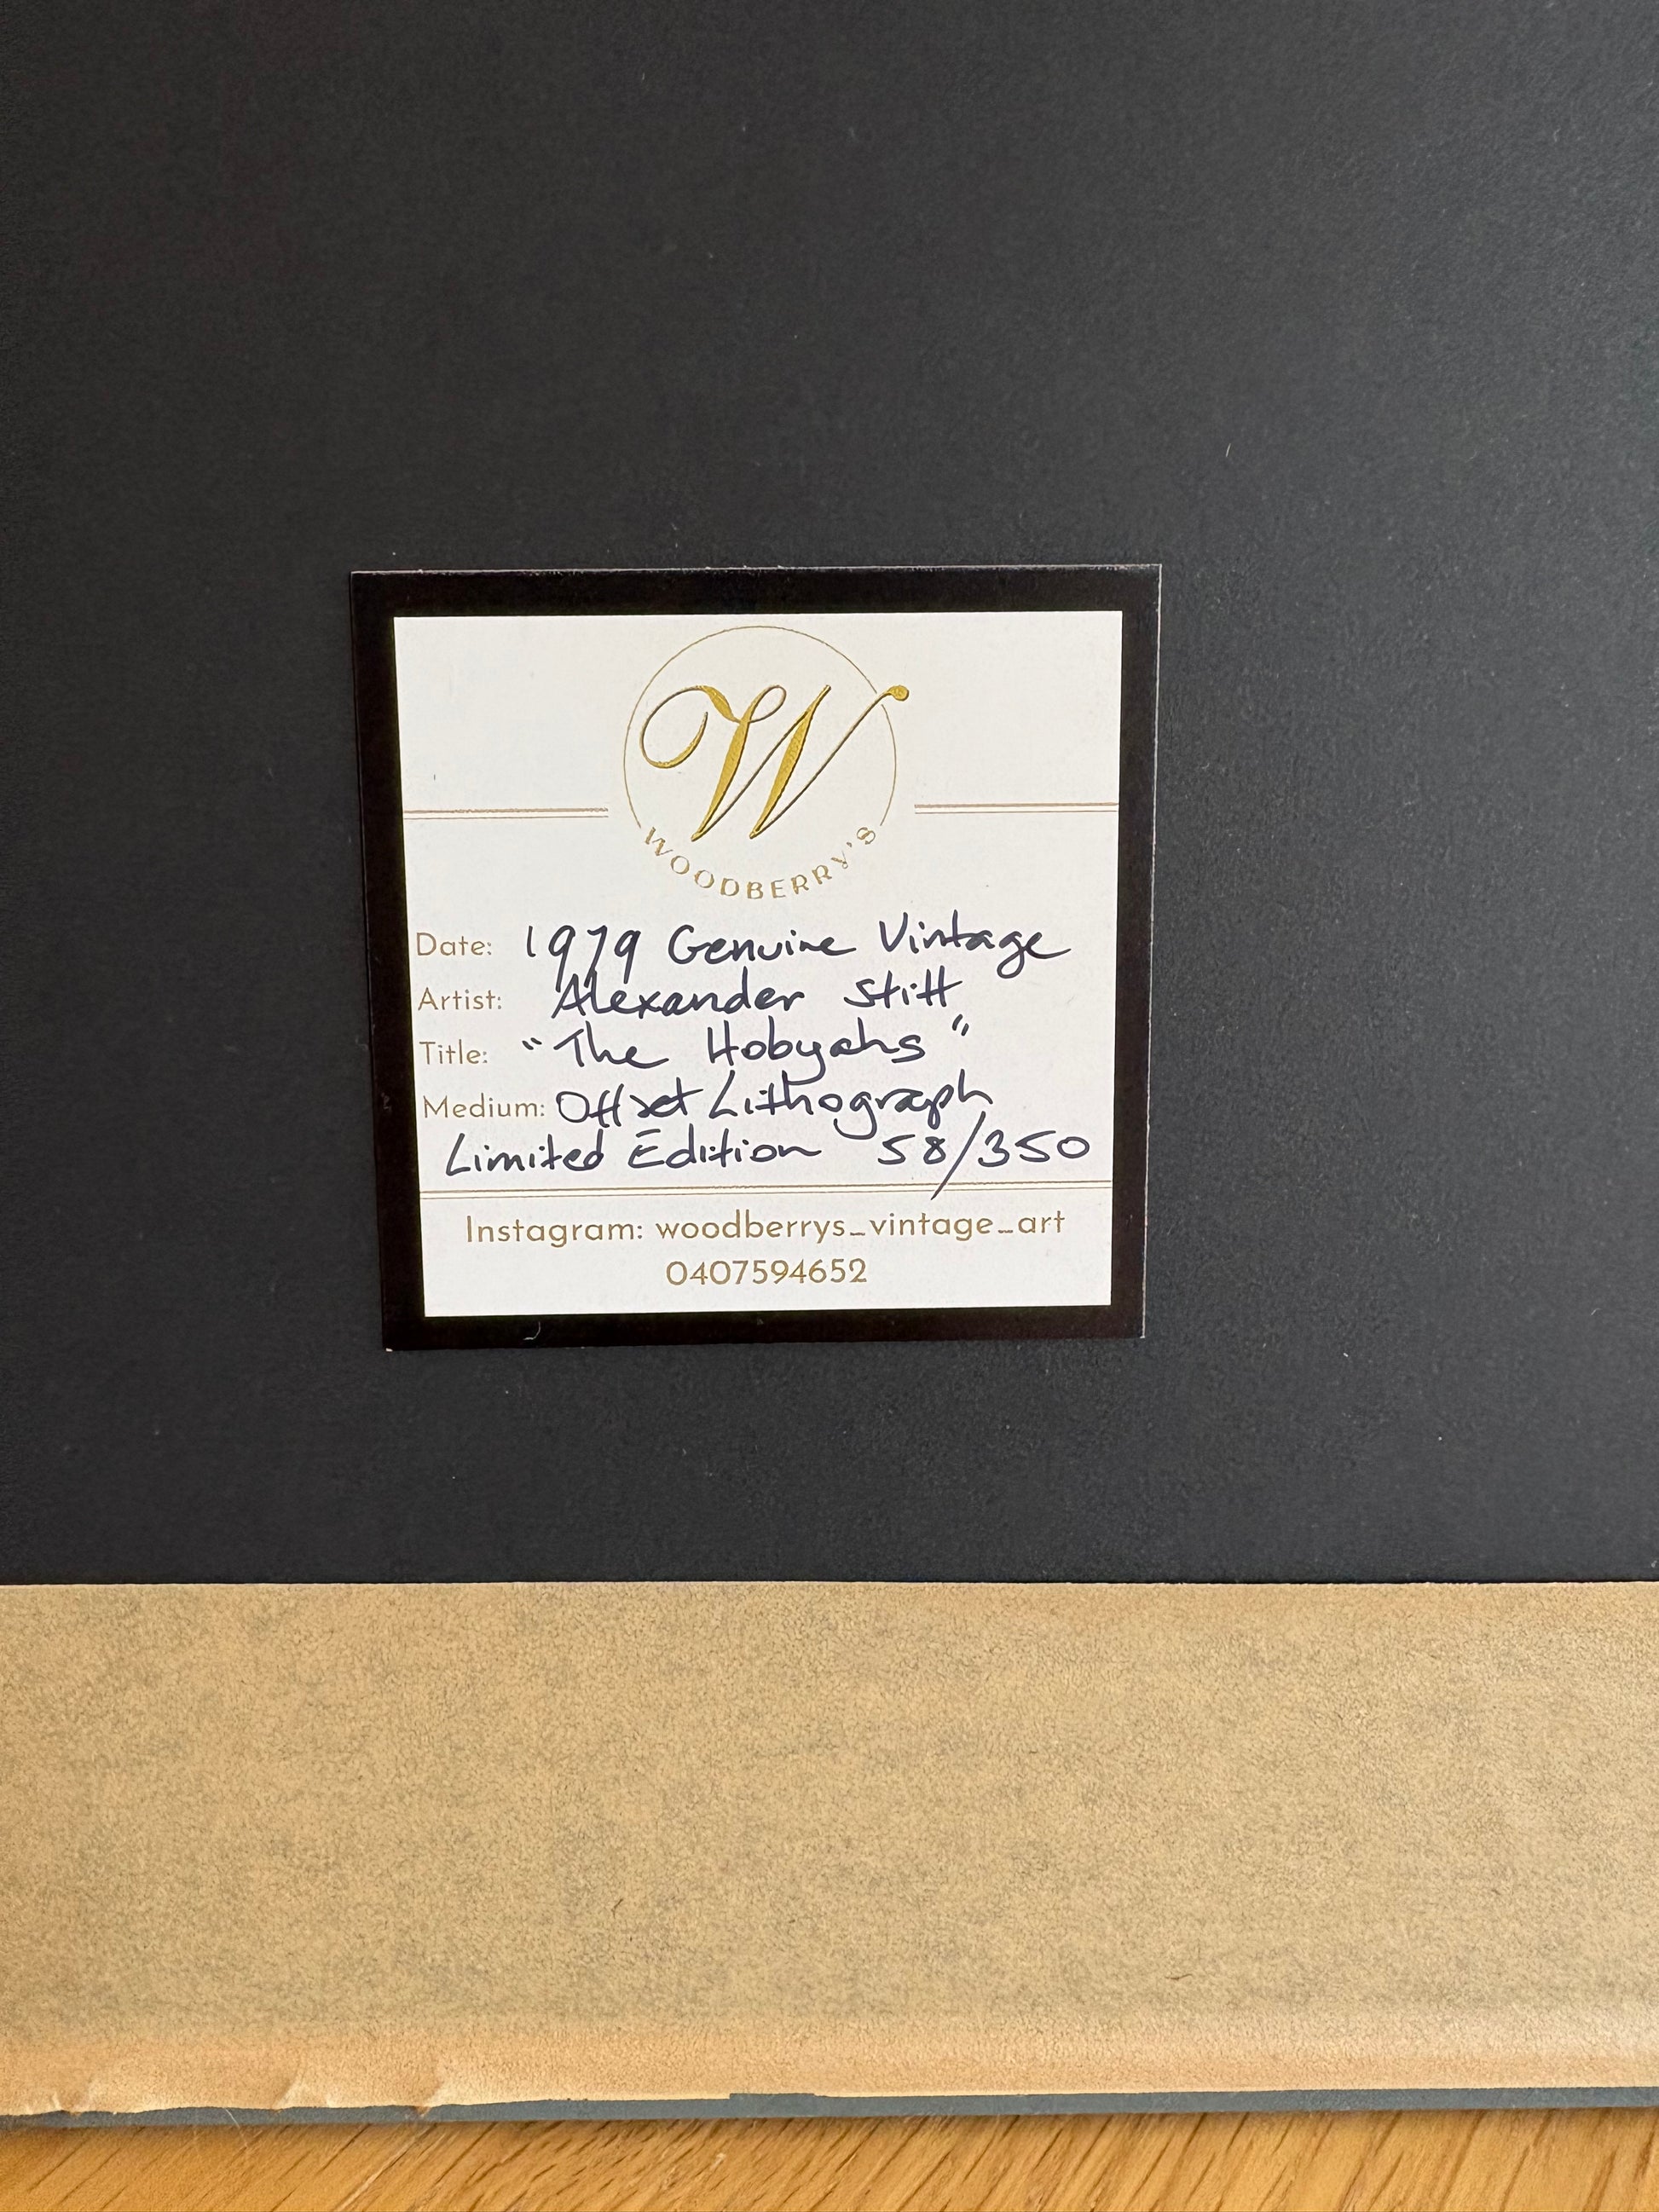 W
WOODBERRY'S
Date: 1979 Genuine Vintage
Artist: Alexander Stitt
Title: "The Hobyahs"
Medium: Offset Lithograph
Limited Edition 58/350
Instagram: woodberrys_vintage_art
0407594652